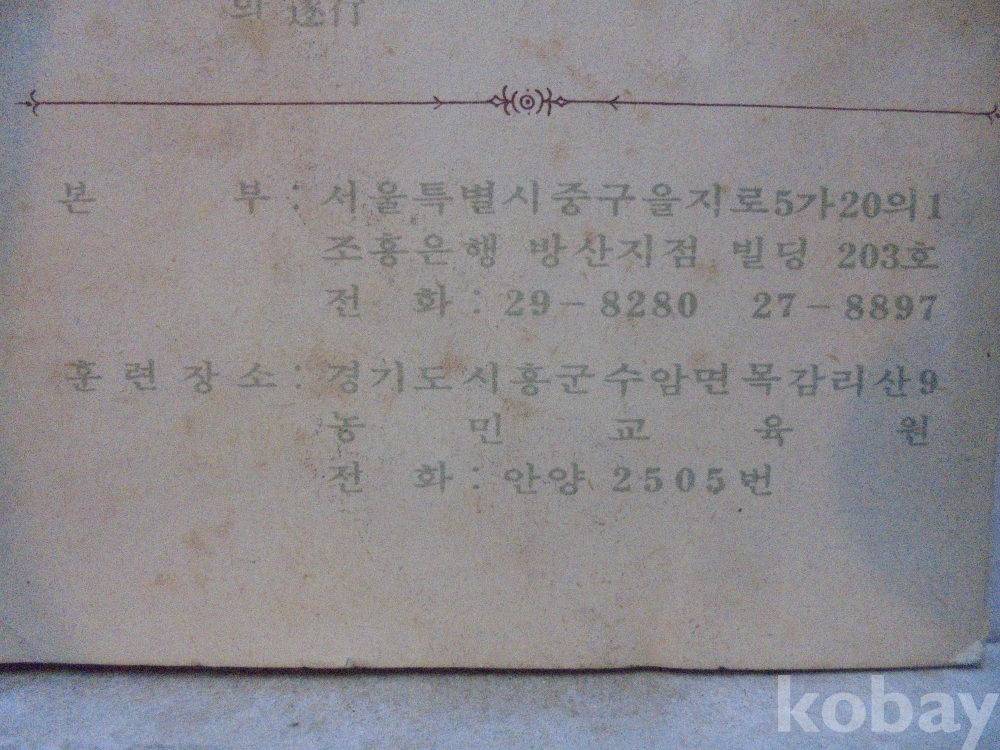 의 遂行
본 부 : 서울특별시중구을지로5가20의1
조흥은행 방산지점 빌딩 203호
전 화 : 29-8280 27-8897
훈 련 장 소 : 경기도시흥군수암면목감리산9
농 민 교 육 원
전 화 : 안양 2505번
kobay